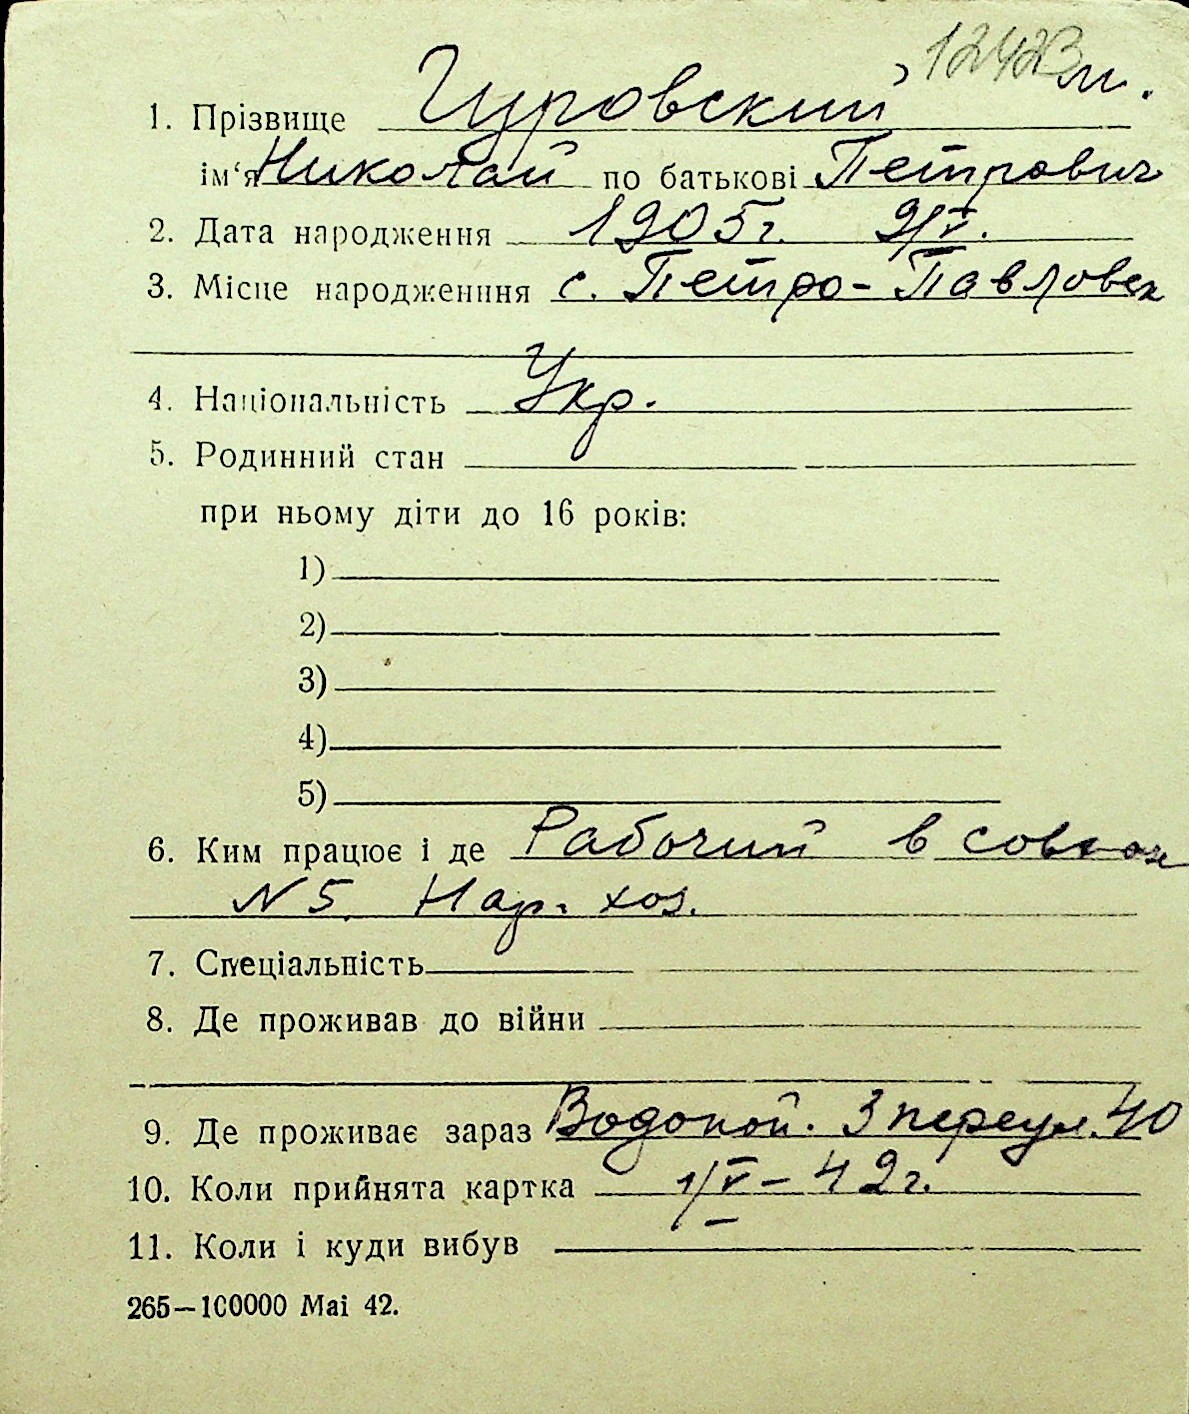 12423 м.
1. Прізвище Гуровский
ім‘я Николай по батькові Петрович
2. Дата народження 1905г. 9/V.
3. Місце народженння с. Петро-Павловск
4. Національність Укр.
5. Родинний стан
при ньому діти до 16 років:
1)
2)
3)
4)
5)
6. Ким працює і де Рабочий в совхозе
N 5. Нар. хоз.
7. Спеціальність
8. Де проживав до війни
9. Де проживає зараз Водопой. 3 переул. 40
10. Коли прийнята картка 1/V-42г.
11. Коли і куди вибув
265—100000 Mai 42.